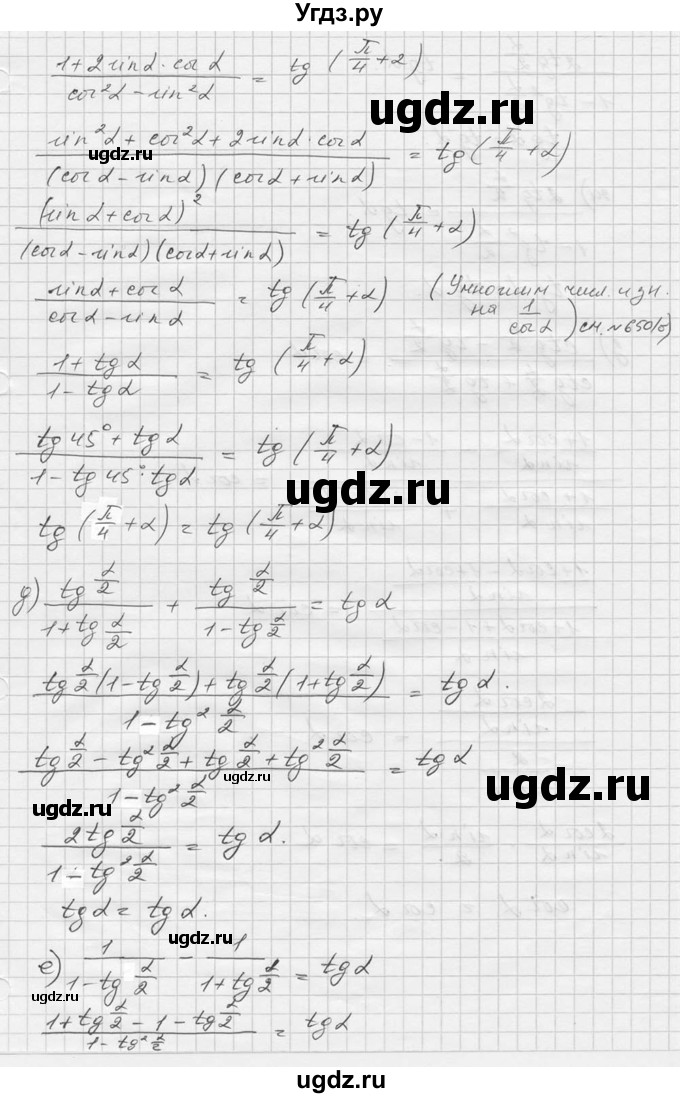 Угдз.ру
(1+2sinα·cosα)/(cos²α-sin²α) = tg(π/4+2)
ugdz.ru
(sin²α+cos²α+2sinα·cosα)/((cosα-sinα)(cosα+sinα)) = tg(π/4+α)
ugdz.ru
(sinα+cosα)²/((cosα-sinα)(cosα+sinα)) = tg(π/4+α)
(sinα+cosα)/(cosα-sinα) = tg(π/4+α) (Умножим числ. и зн.
на 1/cosα) см. №650(б)
(1+tgα)/(1-tgα) = tg(π/4+α)
(tg45°+tgα)/(1-tg45°·tgα) = tg(π/4+α)
ugdz.ru
tg(π/4+α) = tg(π/4+α)
д) (tg α/2)/(1+tg α/2) + (tg α/2)/(1-tg α/2) = tgα
(tg α/2(1-tg α/2)+tg α/2(1+tg α/2))/(1-tg² α/2) = tgα.
(tg α/2 - tg² α/2 + tg α/2 + tg² α/2)/(1-tg² α/2) = tgα
ugdz.ru
ugdz.ru
ugdz.ru
(2tg α/2)/(1-tg² α/2) = tgα.
tgα = tgα.
ugdz.ru
е) 1/(1-tg α/2) - 1/(1+tg α/2) = tgα
ugdz.ru
(1+tg α/2 - 1 - tg α/2)/(1-tg² α/2) = tgα
ugdz.ru